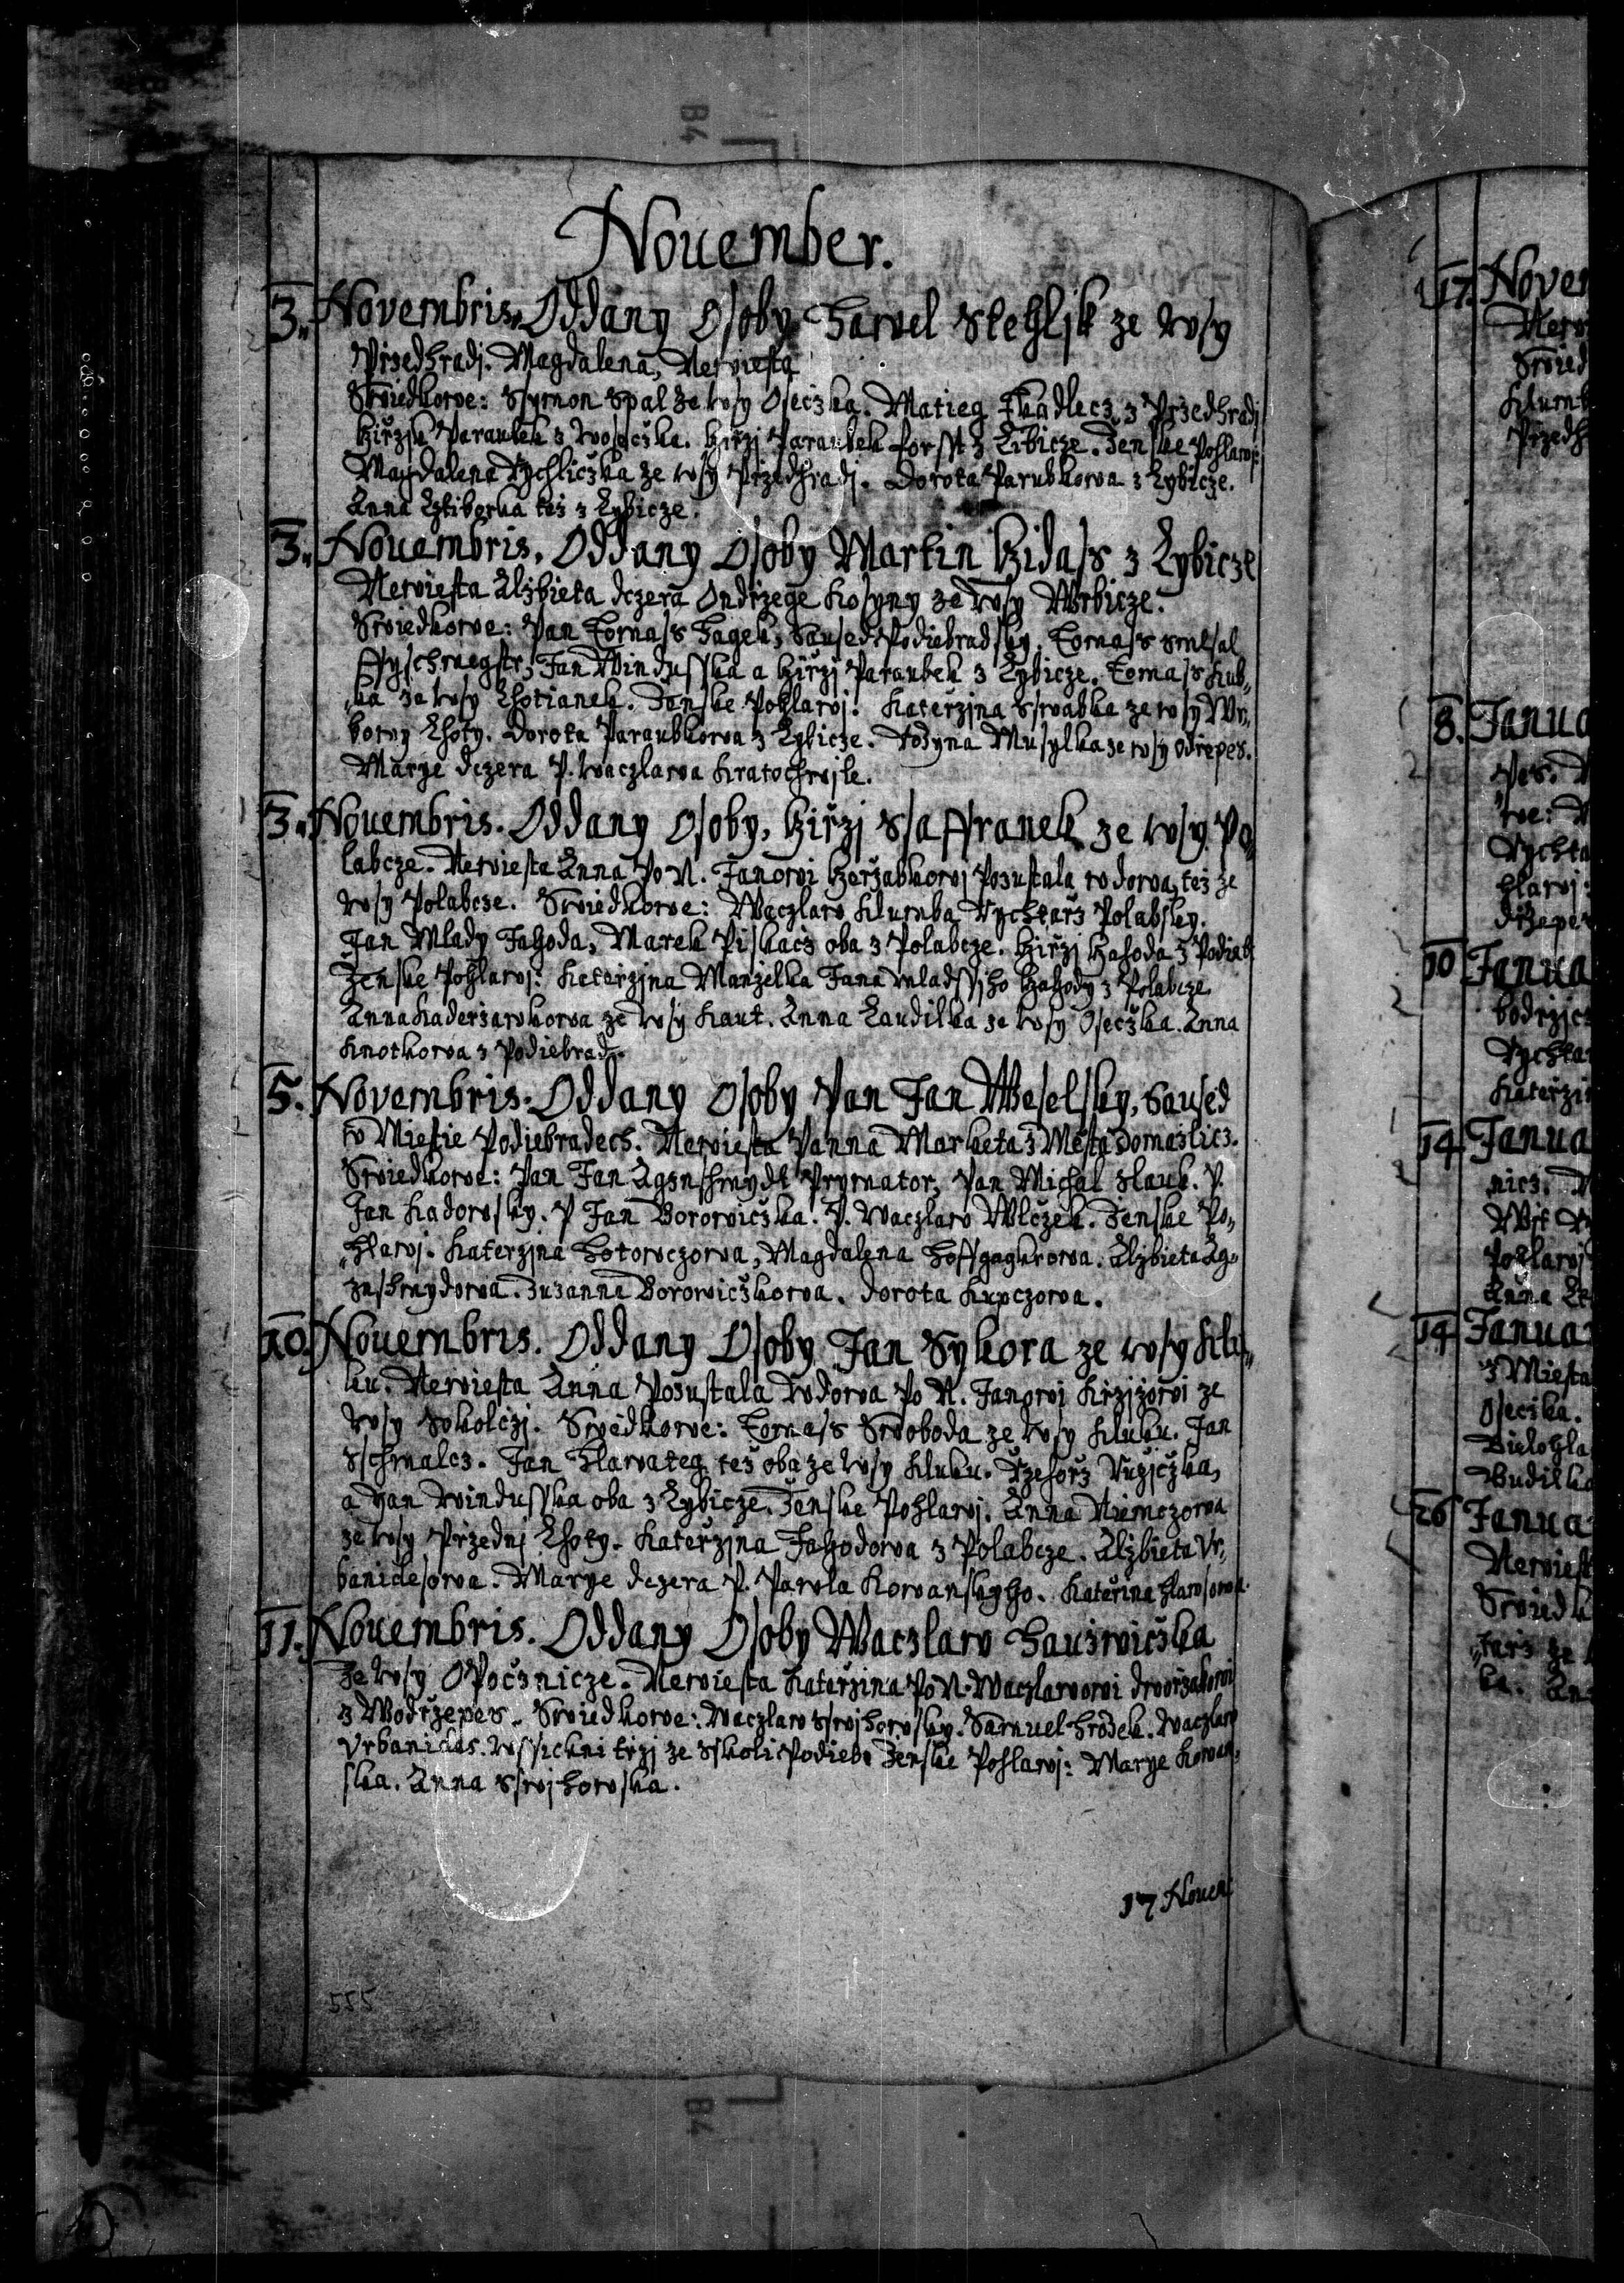 Nouember.
3. Novembris. Oddany Osoby Hawel Stehljk ze wsy
Przedhradj. Magdalena, Newiesta
Swiedkowe: Ssymon Spal ze wsy Oseczka. Matieg Tkadlecz z Przedhradj
Girzjk Paraubek z Woseczka. Girzj Paraubek forsst z Libicze. Ženske Pohlawj:
Magdalena Rychliczka ze wsy Przedhradj. Dorota Parubkowa z Lybicze.
Anna Cztiborka též z Lybicze.
3. Nouembris. Oddany Osoby Martin Gidass z Lybicze
Newiesta Alžbieta dczera Ondrzege Kosyny ze wsy Wrbicze.
Swiedkowe: Pan Tomass Hagek, Saused Podiebradsky. Tomass Smesal
Ffyschmegstr, Jan Windusska a Girzj Paraubek z Lybicze. Tomass Kub„
„ka ze wsy Chotianek. Ženske Pohlawj: Katerzina Sswabka ze wsy Wr„
bowy Lhoty. Dorota Paraubkowa z Lybicze. Rozyna Musylka ze wsy Odrepes.
Marye dczera P. Waczlawa Kratochwjle.
3. Nouembris. Oddany Osoby, Girzj Ssaffranek ze wsy Po„
labcze. Newiesta Anna Po N. Janowi Geržabkowj Pozustala wdowa, též ze
wsy Polabcze. Swiedkowe: Waczlaw Klumba Rychtarz Polabsky.
Jan Mlady Jahoda, Marek Piskacz oba z Polabcze. Girzj Gahoda z Podieb
Ženske Pohlawj: Katerzjna Manželka Jana mladssjho Gahody z Polabcze
Anna Kaderžawkowa ze wsy Kaut. Anna Laudilka ze wsy Oseczka. Anna
Knotkowa z Podiebrad.
5. Novembris. Oddany Osoby Pan Jan Weselsky, Saused
w Miestie Podiebradech. Newiesta Panna Marketa z Mesta Domazlicz.
Swiedkowe: Pan Jan Agznschmydt Prymator, Pan Michal Slauk. P.
Jan Kadowsky. P Jan Borowiczka. P. Waczlaw Wlczek. Ženske Po„
„hlawj. Katerzina Hotowczowa, Magdalena Hoffgagkrowa. Alzbieta Ag„
znschmydowa. Zuzanna Borowiczkowa. Dorota Kupczowa.
10. Nouembris. Oddany Osoby Jan Sykora ze wsy Klu„
ku. Newiesta Anna Pozustala wdowa Po N. Janowj Krzjžowi ze
wsy Sokolczj. Swiedkowe: Tomass Swoboda ze wsy Kluku. Jan
Sschmalcz. Jan Hlawateg též oba ze wsy Kluku. Rzehorž Ružiczka,
a Jan Windusska oba z Lybicze. Ženske Pohlawj. Anna Niemczowa
ze wsy Přednj Lhoty. Katerzjna Jahodowa z Polabcze. Alžbieta Vr„
banidesowa. Marye dczera P. Pawla Kowanskyho. Katerina Hlawsowa.
11. Nouembris. Oddany Osoby Waczlaw Hauzwiczka
ze wsy Opocznicze. Newiesta Katerzina Po N. Waczlawowi Dworzakowi
z Wodržepes. Swiedkowe: Waczlaw Sswihowsky. Samuel Hrodek. Waczlaw
Vrbanides. wssickni trzj ze Sskoli Podieb. Ženske Pohlawj: Marye Kowan„
ska. Anna Sswihowska.
17 Nouem
555
17. Novem
8. Janua
10 Janua
14 Janua
14 Janua
26 Janua
B4
B4